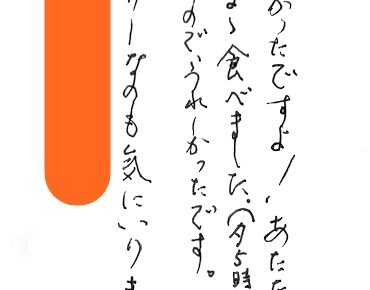 かったですよ!、あたた
食べました。(夕5時
のでうれしかったです。
ーなのも気にいりま